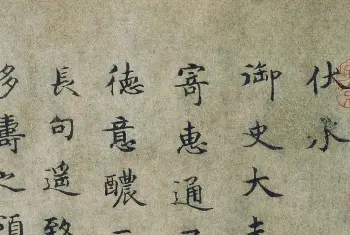 伏承
御史大夫
寄惠通
德意醲
長句遥致
多壽之頌